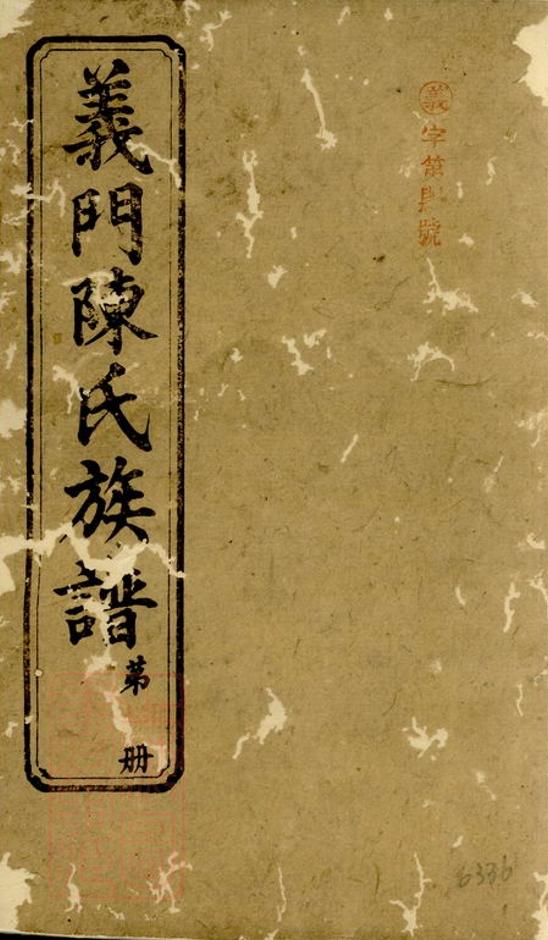 義字第 號
義門陳氏族譜
第 册
6336